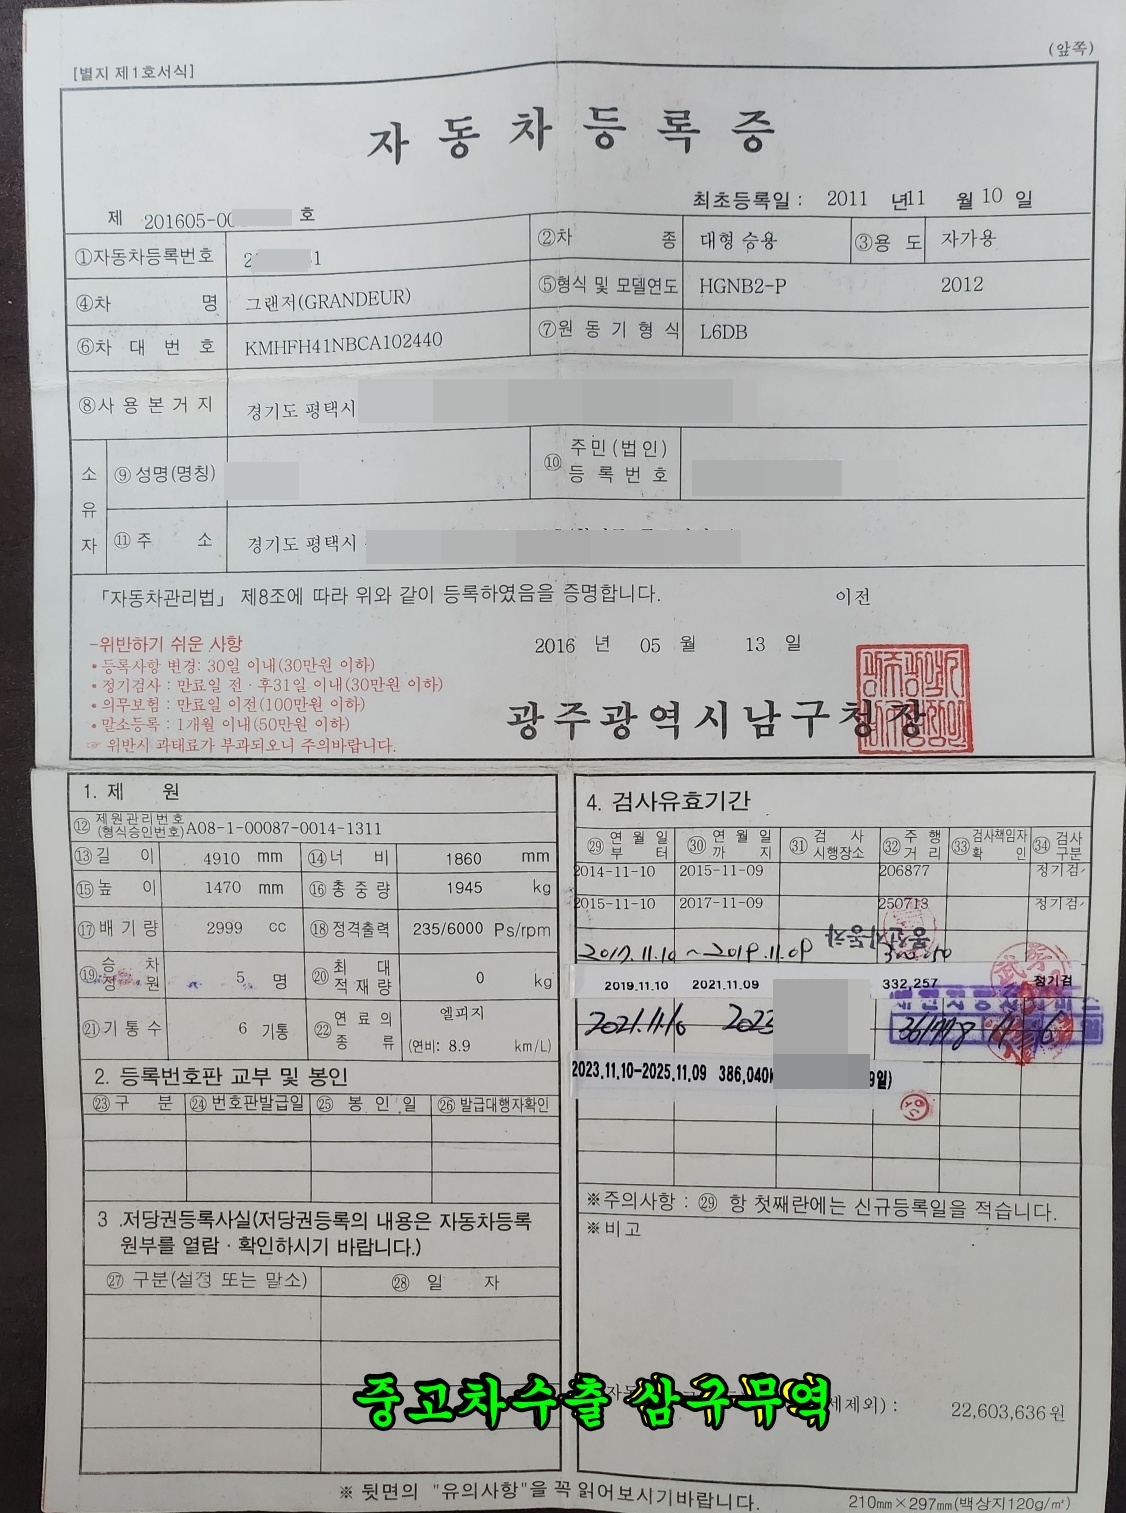 (앞쪽)
[별지 제1호서식]
자동차등록증
제 201605-00 호 최초등록일 : 2011 년 11 월 10 일
①자동차등록번호 2 1 ②차 종 대형 승용 ③용 도 자가용
④차 명 그랜저(GRANDEUR) ⑤형식 및 모델연도 HGNB2-P 2012
⑥차 대 번 호 KMHFH41NBCA102440 ⑦원 동 기 형 식 L6DB
⑧사 용 본 거 지 경기도 평택시
소유자 ⑨성명(명칭) ⑩주민(법인)등록번호
⑪주 소 경기도 평택시
「자동차관리법」 제8조에 따라 위와 같이 등록하였음을 증명합니다. 이전
2016 년 05 월 13 일
-위반하기 쉬운 사항
• 등록사항 변경: 30일 이내(30만원 이하)
• 정기검사 : 만료일 전 · 후31일 이내(30만원 이하)
• 의무보험 : 만료일 이전(100만원 이하)
• 말소등록 : 1개월 이내(50만원 이하)
☞ 위반시 과태료가 부과되오니 주의바랍니다.
광주광역시남구청장
1. 제 원
⑫제원관리번호(형식승인번호) A08-1-00087-0014-1311
⑬길 이 4910 mm ⑭너 비 1860 mm
⑮높 이 1470 mm ⑯총 중 량 1945 kg
⑰배 기 량 2999 cc ⑱정격출력 235/6000 Ps/rpm
⑲승 차 정 원 5 명 ⑳최 대 적 재 량 0 kg
㉑기 통 수 6 기통 ㉒연 료 의 종 류 엘피지
(연비: 8.9 km/L)
2. 등록번호판 교부 및 봉인
㉓구 분 ㉔번호판발급일 ㉕봉 인 일 ㉖발급대행자확인
3 .저당권등록사실(저당권등록의 내용은 자동차등록
원부를 열람 · 확인하시기 바랍니다.)
㉗구분(설정 또는 말소) ㉘일 자
4. 검사유효기간
㉙연 월 일 부 터 ㉚연 월 일 까 지 ㉛검 사 시행장소 ㉜주 행 거 리 ㉝검사책임자 확 인 ㉞검사 구분
2014-11-10 2015-11-09 206877 정기검
2015-11-10 2017-11-09 250713 정기검
2017.11.10 ~ 2019.11.09
2019.11.10 2021.11.09 332,257 정기검
2021.11.10 2023
2023.11.10-2025.11.09 386,040 9일)
※주의사항 : ㉙ 항 첫째란에는 신규등록일을 적습니다.
※비고
세제외) : 22,603,636원
중고차수출 삼구무역
※ 뒷면의 "유의사항"을 꼭 읽어보시기바랍니다.
210㎜×297㎜(백상지120g/㎡)